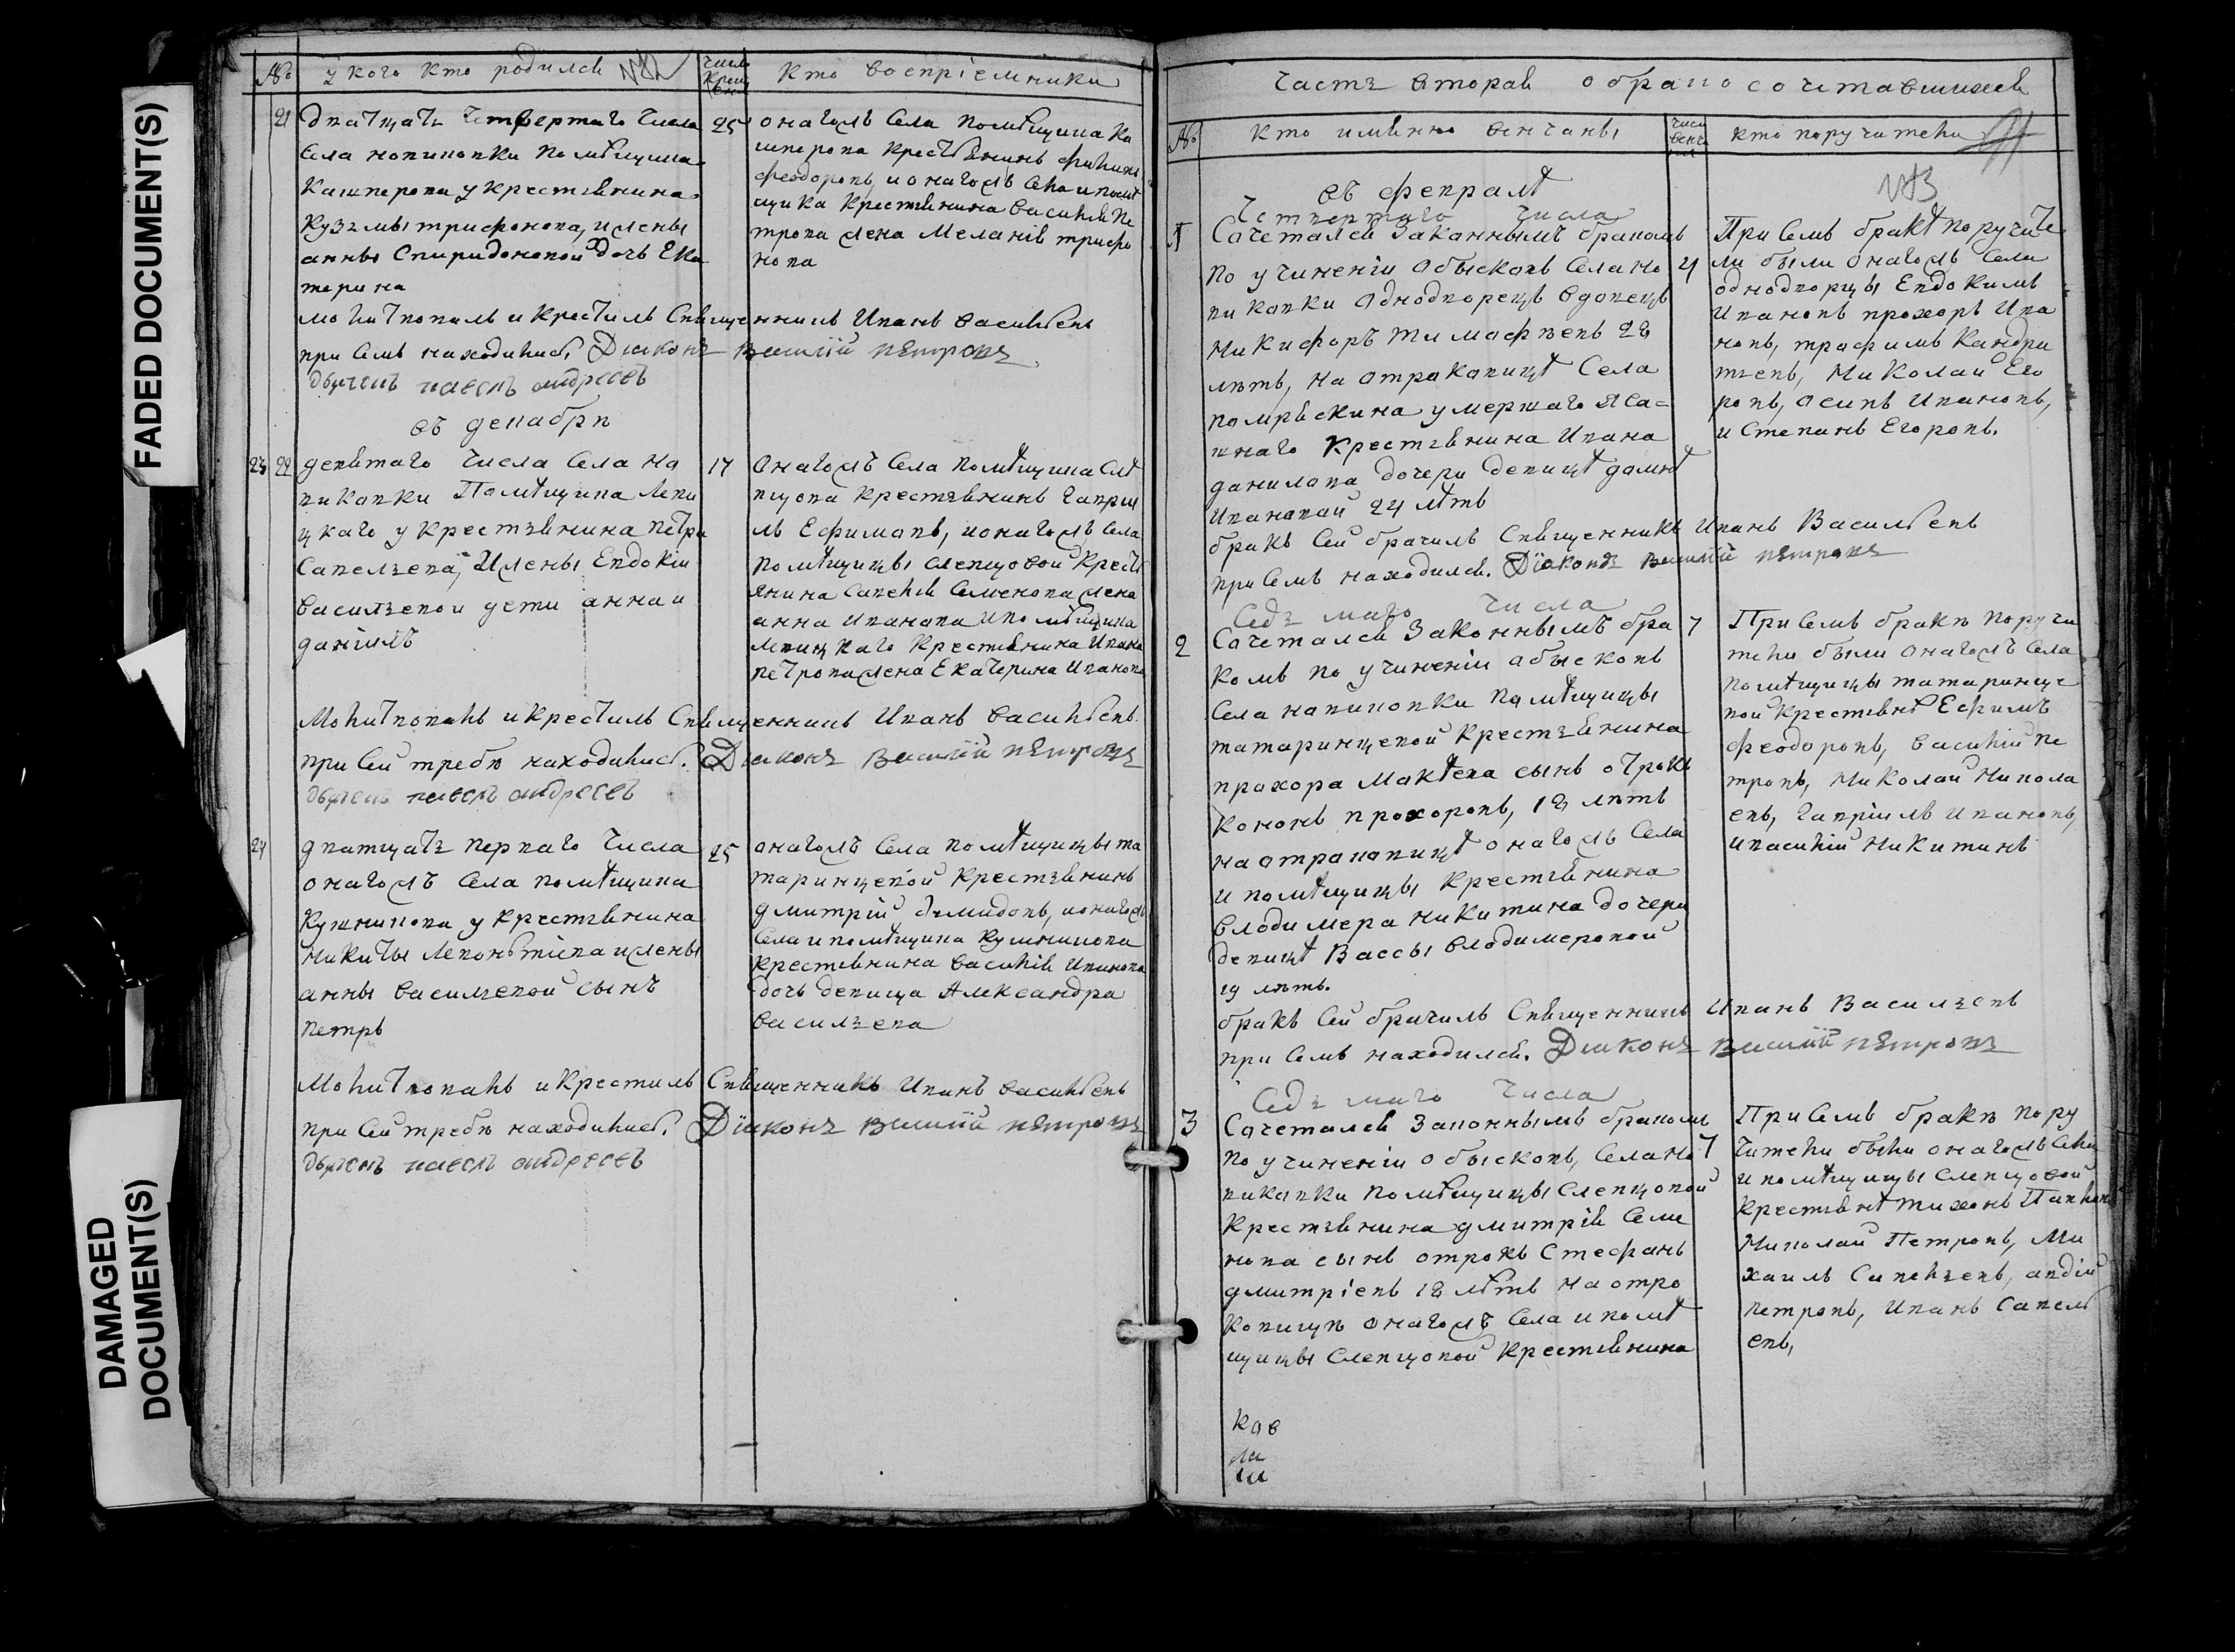 FADED DOCUMENT(S)
DAMAGED
DOCUMENT(S)
№
у кого кто родился
№2
число
крещ
ения
кто восприемники
21
дватцать четвертаго числа
села новиковки помѣщика
Кашперова у крестьянина
Кузьмы трифонова, и жены
анны Спиридоновой дочь Ека
терина
25
онагожъ села помѣщика Ка
шперова крестьянинъ филипъ
феодоровъ, и онагожъ села и помѣ
щика крестьянина василія Пе
трова жена Меланія трифо
нова
молитвовалъ и крестилъ Священникъ Иванъ васильевъ
при семъ находились Діаконъ Василій Петровъ
дьячекъ павелъ андреевъ
въ декабрѣ
23
22
девятаго числа села но
виковки Помѣщика Леви
цкаго у крестьянина петра
Савельева, и жены Евдокіи
васильевой дети анна и
даніилъ
17
онагожъ села помѣщика Слѣ
пцова крестьянинъ гаври
лъ Ефимовъ, и онагожъ села
помѣщицы слепцовой крест
янина Савелія Семенова жена
анна Иванова и помѣщика
левицкаго крестьянина Ивана
петрова жена Екатерина Иванова
Молитвовалъ и крестилъ Священникъ Иванъ васильевъ
при сей требѣ находились. Діаконъ Василій Петровъ
дьячекъ павелъ андреевъ
24
дватцать перваго числа
онагожъ села помѣщика
Кужникова у крестьянина
Никиты Леонтіева и жены
анны васильевой сынъ
петръ
25
онагожъ села помѣщицы та
таринцевой крестьянинъ
дмитрій демидовъ, и онагожъ
села и помѣщика Кужникова
крестьянина василія Иванова
дочь девица Александра
васильева
Молитвовалъ и крестилъ Священникъ Иванъ васильевъ
при сей требѣ находились. Діаконъ Василій Петровъ
дьячекъ павелъ андреевъ
часть вторая о бракосочетавшихся
№
кто имянно венчаны
число
венча
ния
кто поручители
№3
въ февралѣ
Четвертаго числа
1
Сочетался законнымъ бракомъ
по учиненіи обысковъ села но
виковки однодворецъ вдовецъ
Никифоръ тимофѣевъ 28
лѣтъ, на отроковицѣ села
помряскина умершаго ясашнаго крестьянина Ивана
данилова дочери девицѣ домнѣ
Ивановой 24 лѣтъ
4
При семъ бракѣ поручите
ли были онагожъ села
однодворцы Евдокимъ
Ивановъ прохоръ Ива
новъ, трафимъ Кандра
тьевъ, Николай Его
ровъ, осипъ Ивановъ,
и Степанъ Егоровъ.
бракъ сей брачилъ Священникъ Иванъ Васильевъ
при семъ находился. Діаконъ Василій Петровъ
Седьмаго числа
2
Сочетался законнымъ бра
комъ по учиненіи обысковъ
села новиковки помѣщицы
татаринцевой крестьянина
прохора Мокѣева сынъ отрокъ
кононъ прохоровъ, 18 лѣтъ
на отроковицѣ онагожъ села
и помѣщицы крестьянина
влодимера никитина дочери
девицѣ Вассы влодимеровой
19 лѣтъ.
7
При семъ бракѣ поручи
тели были онагожъ села
помѣщицы татаринце
вой крестьянѣ Ефимъ
феодоровъ, василій пе
тровъ, Николай Никола
евъ, гавріилъ Ивановъ,
и василій Никитинъ
бракъ сей брачилъ Священникъ Иванъ Васильевъ
при семъ находился. Діаконъ Василій Петровъ
Седьмаго числа
3
Сочетался законнымъ бракомъ
по учиненіи обысковъ, села но
виковки помѣщицы слепцовой
крестьянина дмитрія Семе
нова сынъ отрокъ Стефанъ
дмитріевъ 18 лѣтъ на отро
ковицѣ онагожъ села и помѣ
щицы слепцовой крестьянина
7
При семъ бракѣ пору
чители были онагожъ села
и помѣщицы слепцовой
крестьянѣ тихонъ
Николай Петровъ, Ми
хаилъ Савельевъ,
петровъ, Иванъ Савель
евъ,